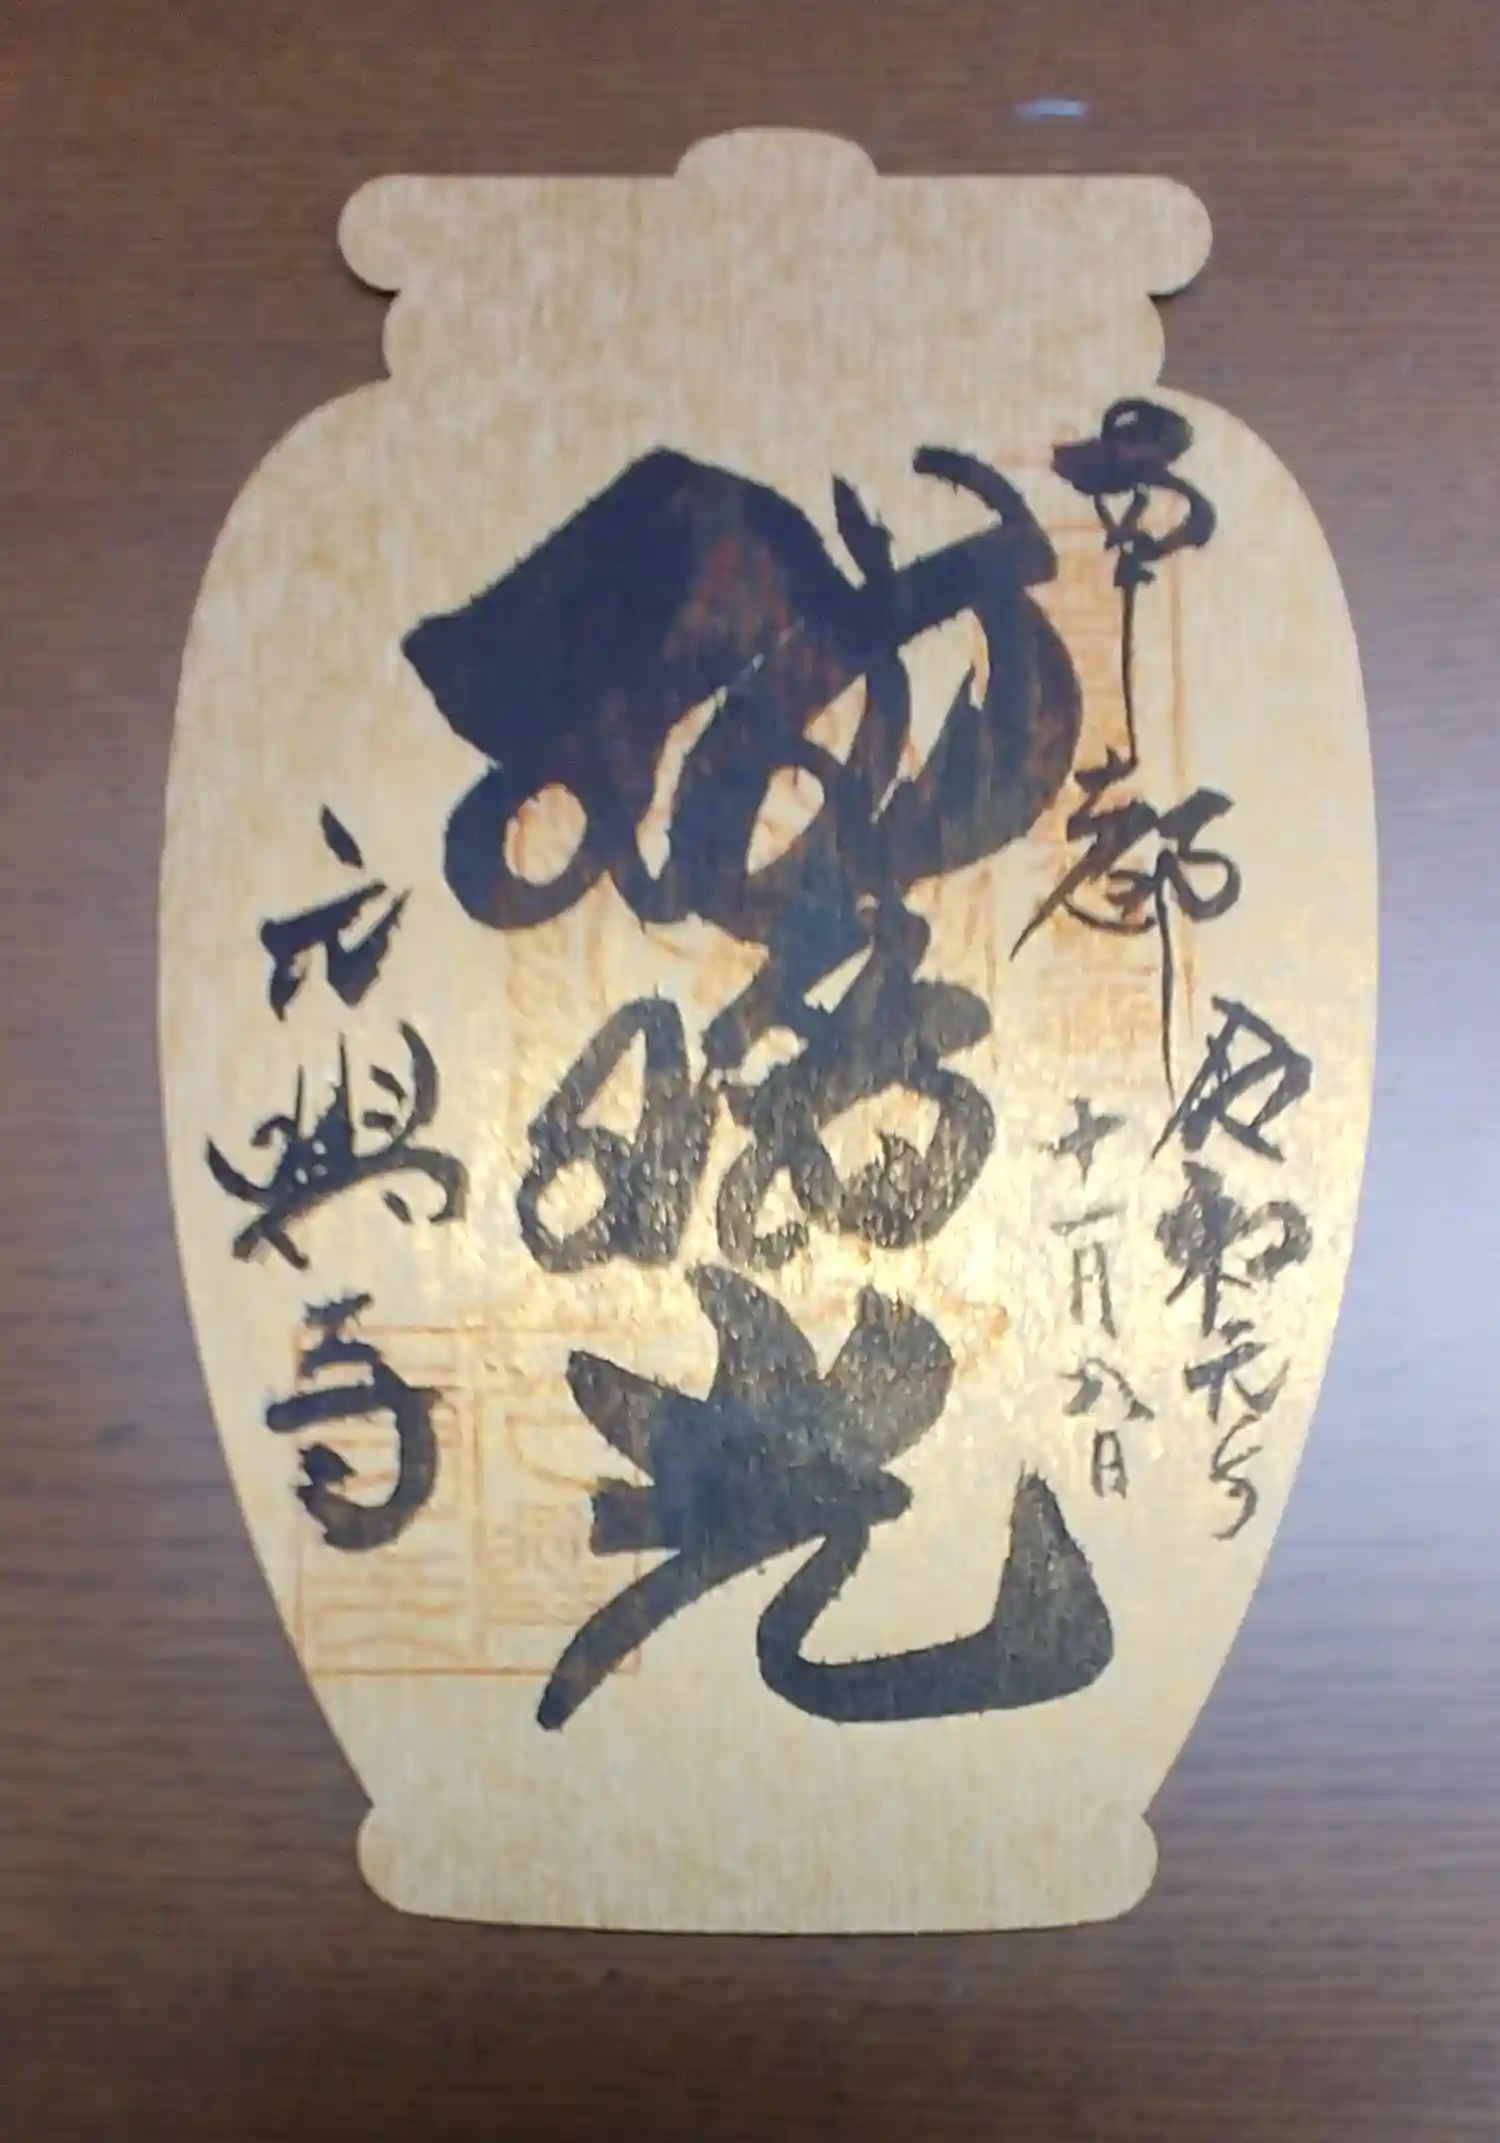 南都
令和元年
十一月八日
瑠璃光
元興寺